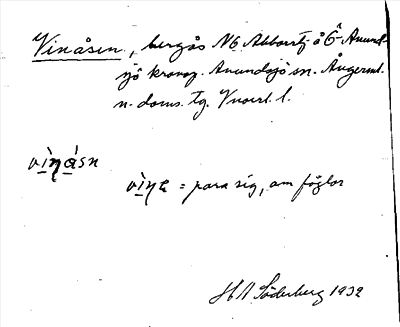 Vinåsen, bergås NÖ Abborrtj. å Ö. Anund-
sjö kronop. Anundsjö sn. Ångerml.
n. doms. tg. Vnorrl. l.
vìṇåsn
vìṇe = para sig, om fåglar
H A Söderberg 1932